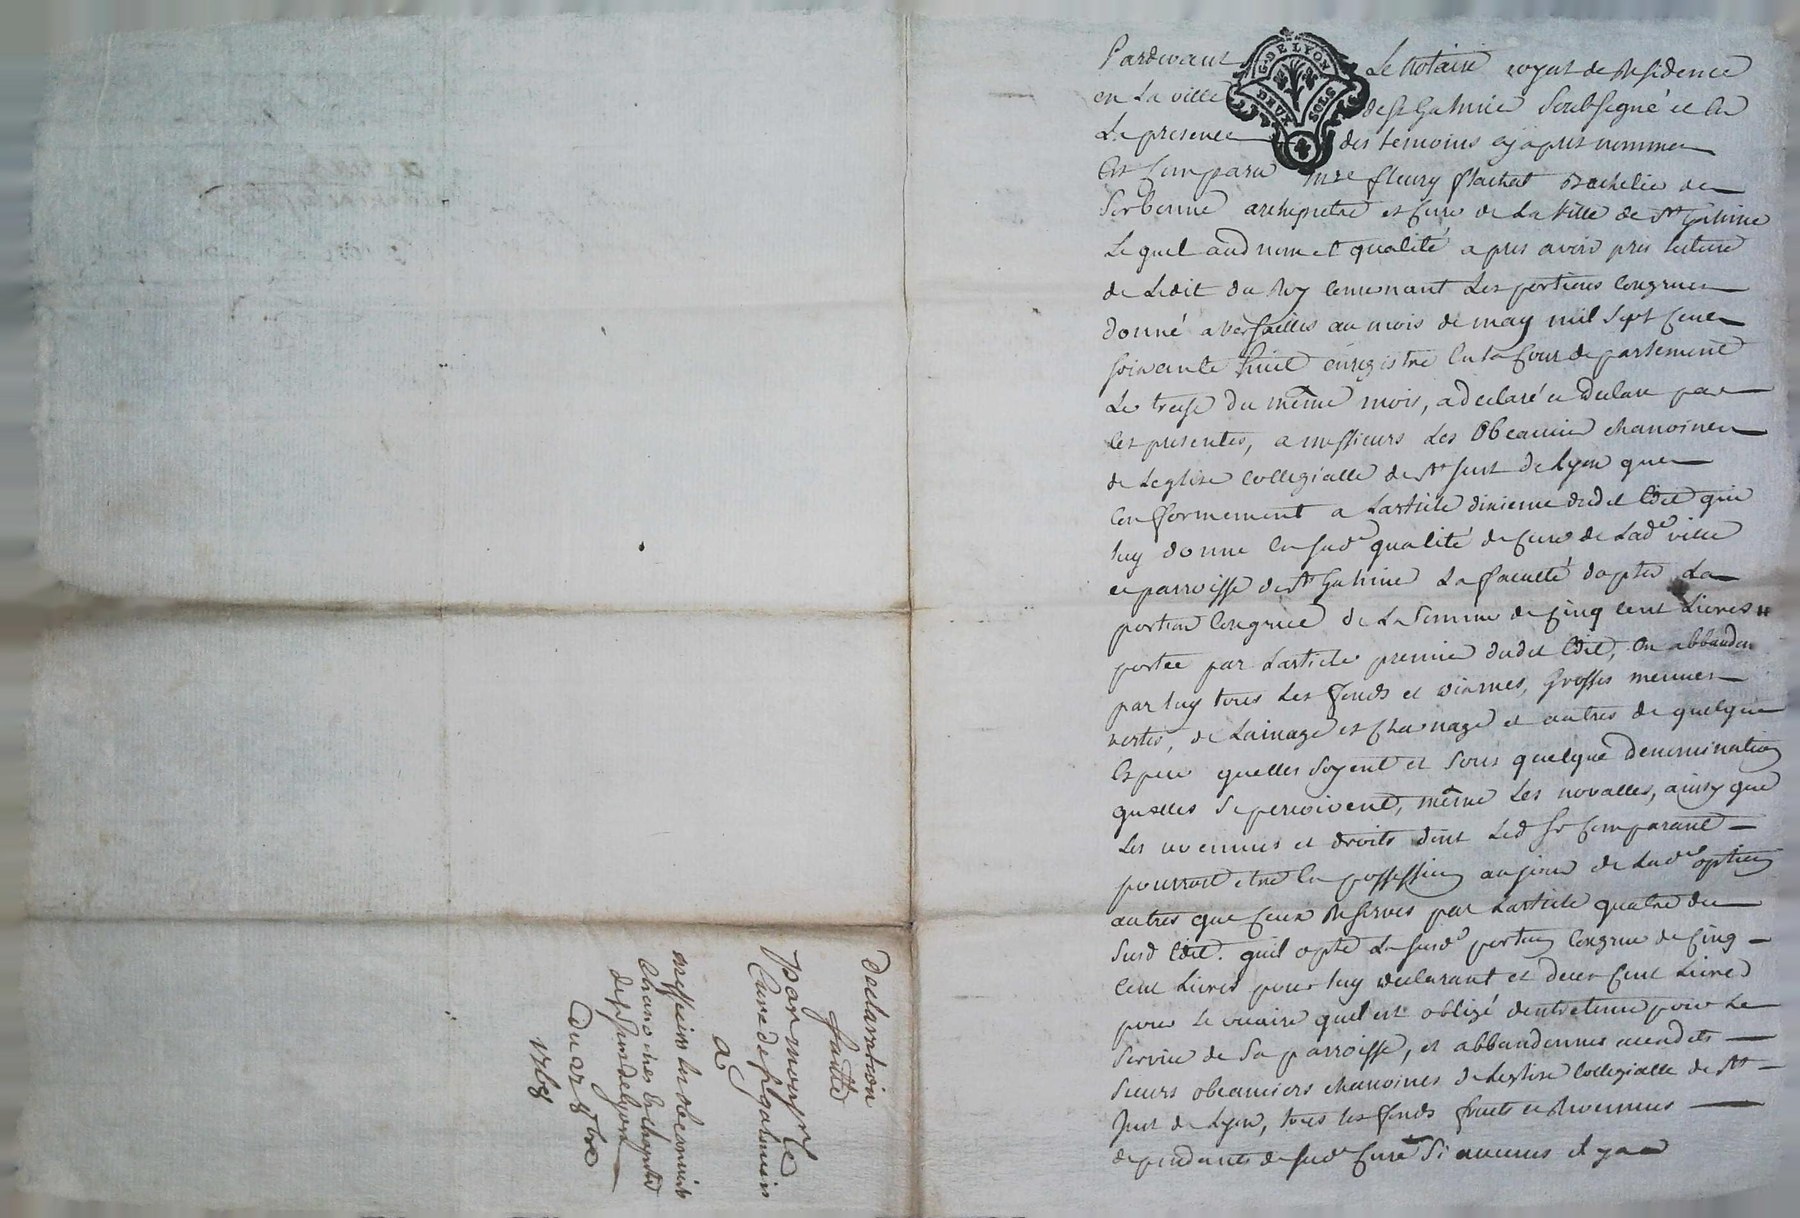 G. DE LYON
DEUX SOLS
Pardevant Le notaire royal de Residence
en La ville de St Galmier Soubsigné et En
La presence des temoins cy apres nommes
Est Comparu mre fleury flachat Bachelier de
Sorbonne archipretre et Curé de La Ville de St Galmier
Lequel aud nom et qualité apres avoir pris lecture
de Ledit du Roy Concernant Les portions Congrues
donné a Versailles au mois de may mil Sept Cent
soixante huit enregistré En la Cour de parlement
Le treise du même mois, a declaré et Declare par
Ces presentes, a messieurs Les Obeancier chanoines
de Leglise Collegialle de St Just de Lyon que
Conformement a Larticle dixieme dudit Edit qui
luy donne En sude qualité de Curé de Lade ville
et parroisse de St Galmier La faculté dopter La
portion Congrue de La Somme de Cinq Cent Livres
portée par Larticle premier dudit Edit, En abbandon
par luy tous Les fonds et dixmes, Grosses menues
vertes, de Lainage et Charnage et autres de quelque
Espece quelles Soyent et Sous quelque denomination
quelles Se percoivent, même Les novalles, ainsy que
Les revenus et droits dont Led Sr Comparant
pourroit etre En possession au jour de Lade option
autres que Ceux Reservés par Larticle quatre du
Susd Edit. quil opte La susde portion Congrue de Cinq
Cent Livres pour luy declarant et deux Cent Livres
pour Le vicaire quil est obligé dentretenir pour Le
Service de Sa parroisse, et abbandonne auxdits
Sieurs obeanciers chanoines de Leglise Collegialle de St
Just de Lyon, tous les fonds fruits et Revenus
dependants de sude Cure Si aucuns il y a
declaration
faitte
Par monsr Le
Curé de st galmier
a
messieurs les obeancier
Chanoines & chapitre
de st Just de Lyon
Du 27 8bre
1768